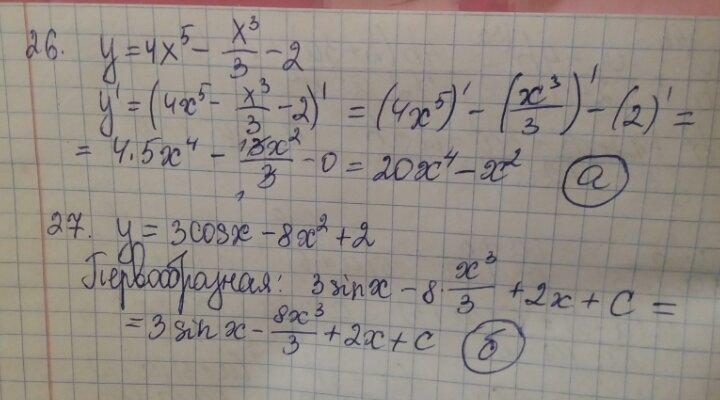 26. y = 4x⁵ - x³/3 - 2
y' = (4x⁵ - x³/3 - 2)' = (4x⁵)' - (x³/3)' - (2)' =
= 4·5x⁴ - 3x²/3 - 0 = 20x⁴ - x² а
27. y = 3cosx - 8x² + 2
Первообразная: 3sinx - 8·x³/3 + 2x + C =
= 3sinx - 8x³/3 + 2x + C б